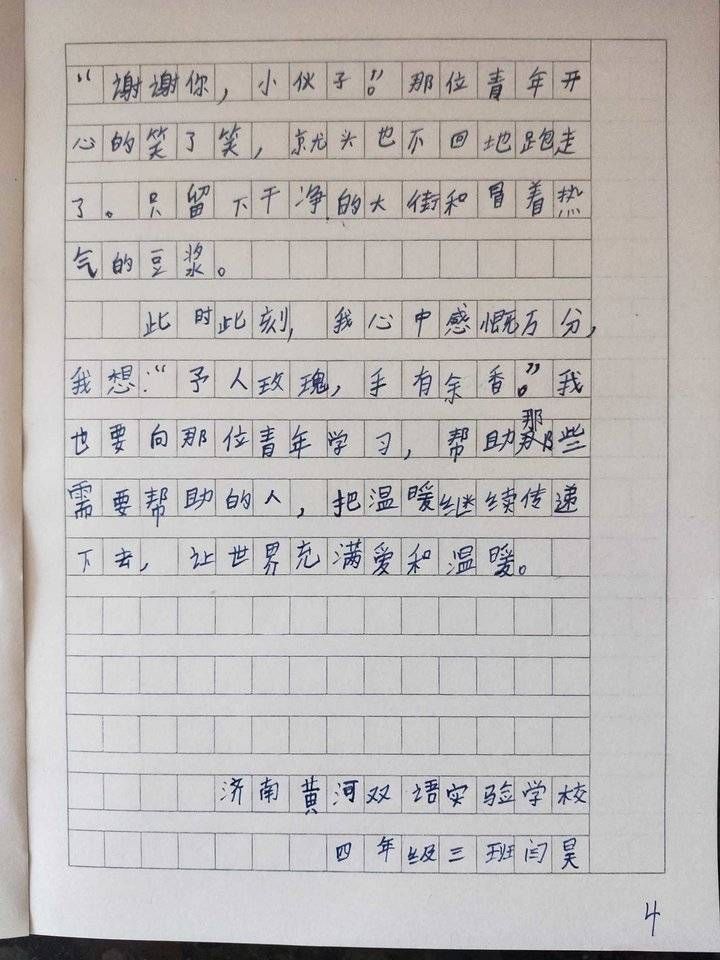 “谢谢你，小伙子”。那位青年开
心的笑了笑，就头也不回地跑走
了。只留下干净的大街和冒着热
气的豆浆。
此时此刻，我心中感慨万分，
我想：“予人玫瑰，手有余香。”我
也要向那位青年学习，帮助那些
需要帮助的人，把温暖继续传递
下去，让世界充满爱和温暖。
济南黄河双语实验学校
四年级三班闫昊
4